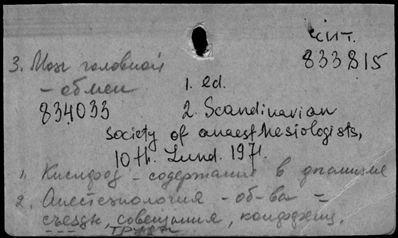 сит.
833815
3. Мозг головной
- обмен 1. ed.
834033 2. Scandinavian
society of anaesthesiologists,
10th. Lund. 1971.
1. Кислород - содержание в организме
2. Анестезиология - об-ва -
съезды, совещания, конференц.